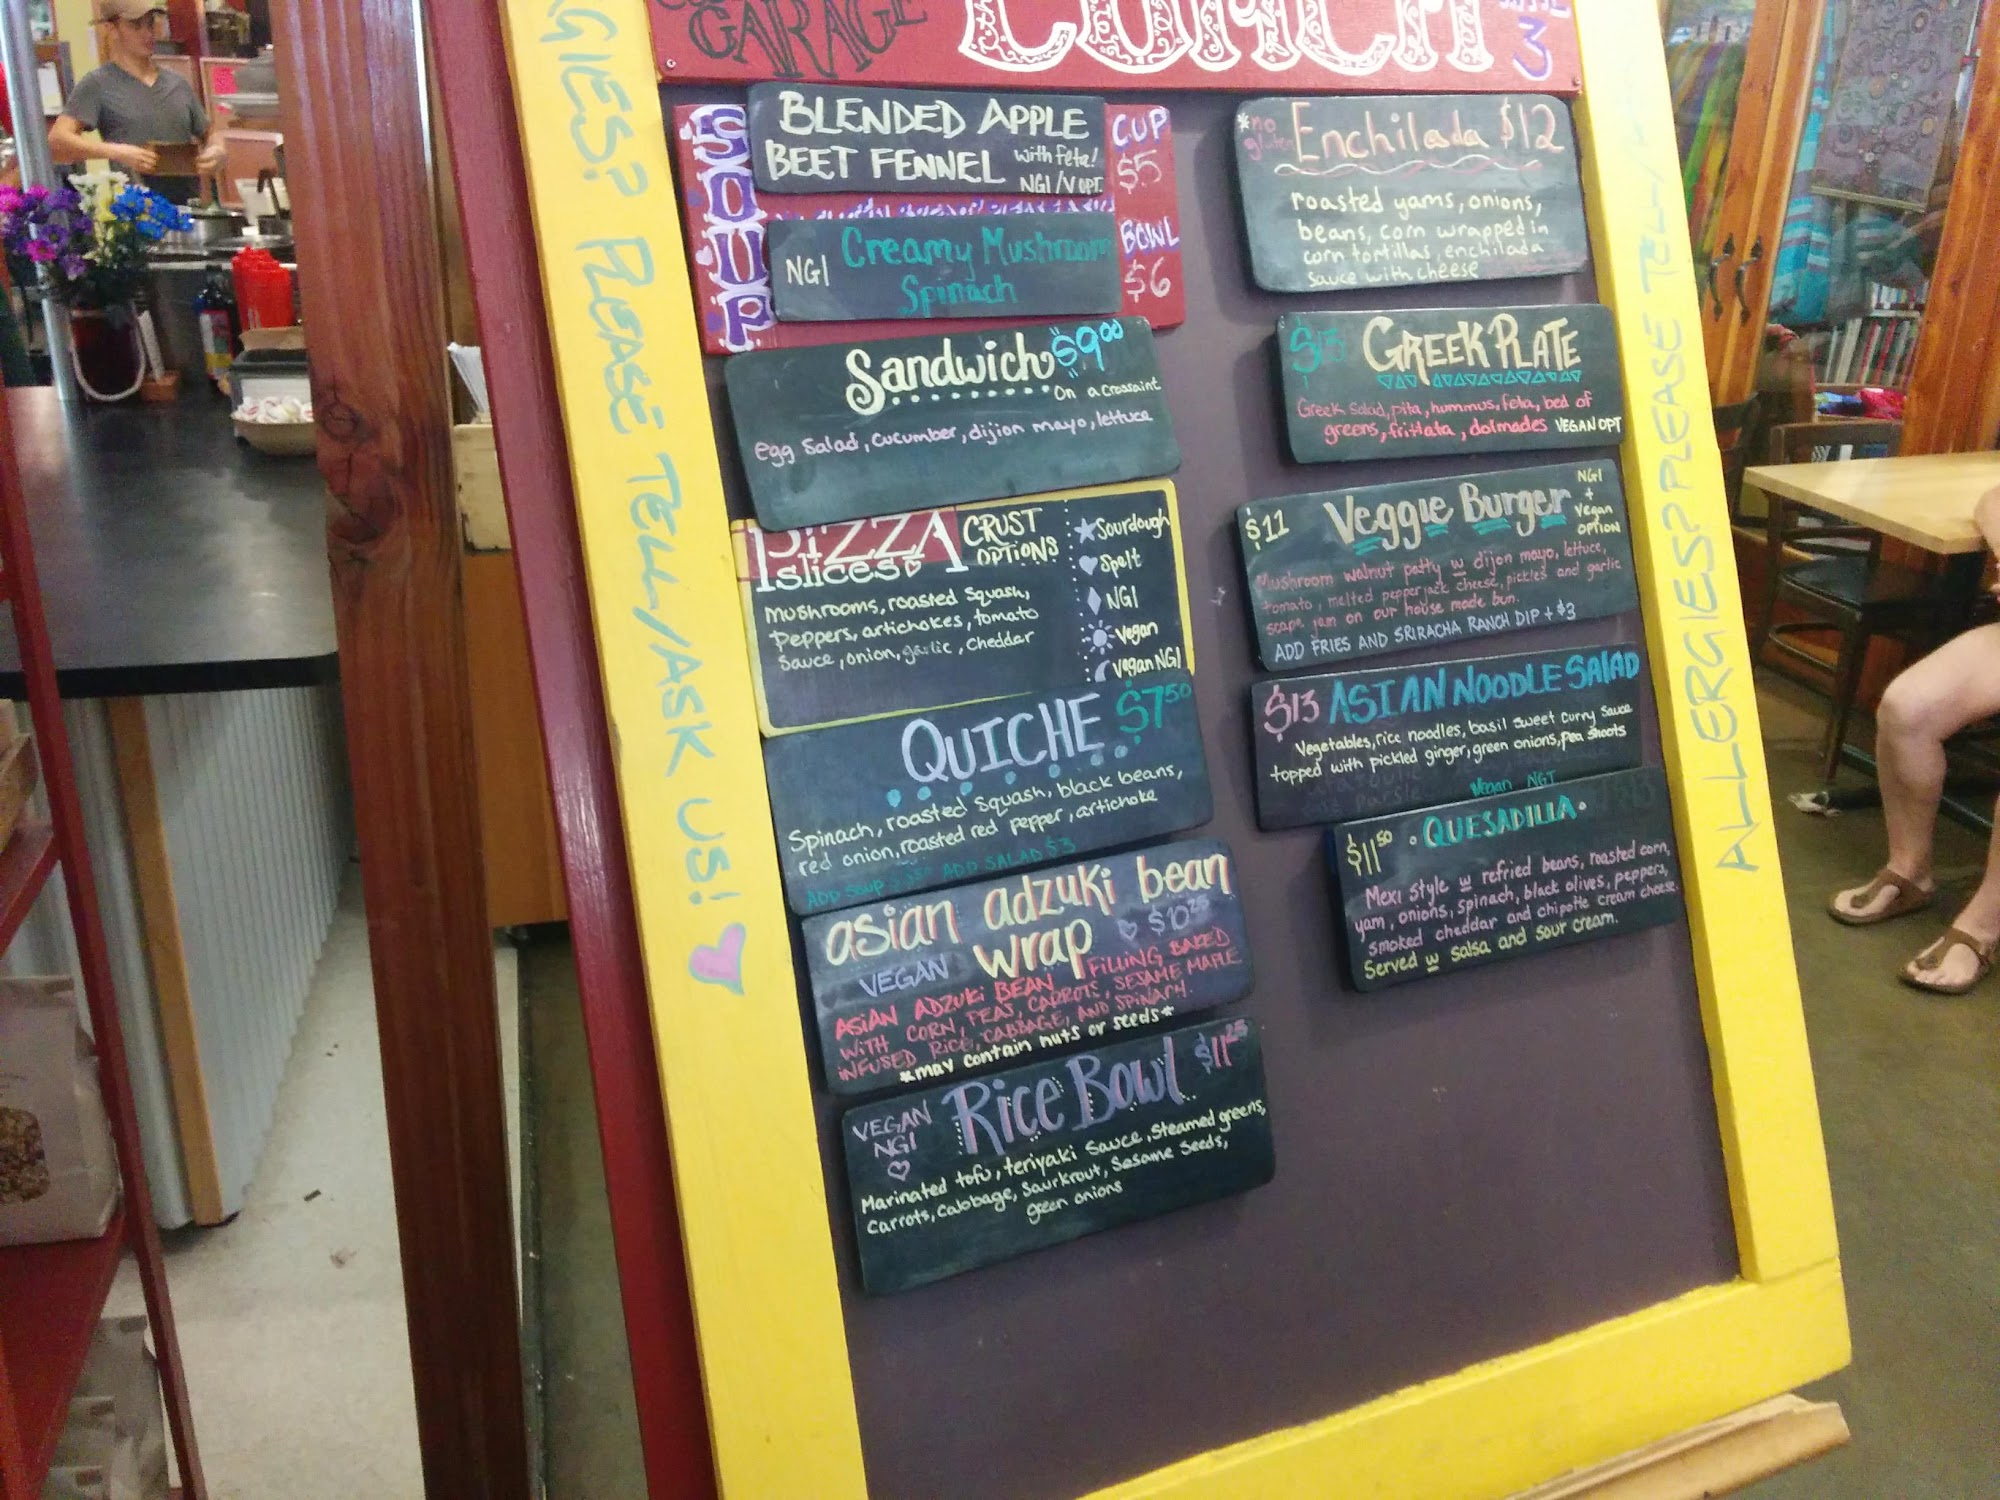 GARAGE
LUNCH
3
SOUP
BLENDED APPLE
BEET FENNEL with feta!
NGI/V OPT.
CUP
$5
NGI Creamy Mushroom
Spinach
BOWL
$6
Sandwich $9.00
On a crossaint
egg salad, cucumber, dijion mayo, lettuce
PIZZA
slices
CRUST
OPTIONS
Sourdough
Spelt
NGI
Vegan
Vegan NGI
Mushrooms, roasted squash,
Peppers, artichokes, tomato
sauce, onion, garlic, cheddar
QUICHE $7.50
Spinach, roasted squash, black beans,
red onion, roasted red pepper, artichoke
ADD SOUP ADD SALAD $3
asian adzuki bean
wrap $10.25
VEGAN
ASIAN ADZUKI BEAN FILLING BAKED
WITH CORN, PEAS, CARROTS, SESAME MAPLE
INFUSED RICE, CABBAGE, AND SPINACH.
*may contain nuts or seeds*
VEGAN
NGI
Rice Bowl $11.25
Marinated tofu, teriyaki sauce, steamed greens,
carrots, cabbage, saurkrout, sesame seeds,
green onions
*no
gluten
Enchilada $12
roasted yams, onions,
beans, corn wrapped in
corn tortillas, enchilada
sauce with cheese
$13 GREEK PLATE
Greek salad, pita, hummus, feta, bed of
greens, frittata, dolmades VEGAN OPT
$11 Veggie Burger
NGI
+
Vegan
OPTION
Mushroom walnut patty w dijon mayo, lettuce,
tomato, melted pepperjack cheese, pickles and garlic
scape jam on our house made bun.
ADD FRIES AND SRIRACHA RANCH DIP + $3
$13 ASIAN NOODLE SALAD
Vegetables, rice noodles, basil sweet curry sauce
topped with pickled ginger, green onions, pea shoots
Vegan NGI
$11.50 QUESADILLA
Mexi style w refried beans, roasted corn,
yam, onions, spinach, black olives, peppers,
smoked cheddar and chipotle cream cheese.
Served w salsa and sour cream.
GIES? PLEASE TELL/ASK US!
ALLERGIES? PLEASE TELL/